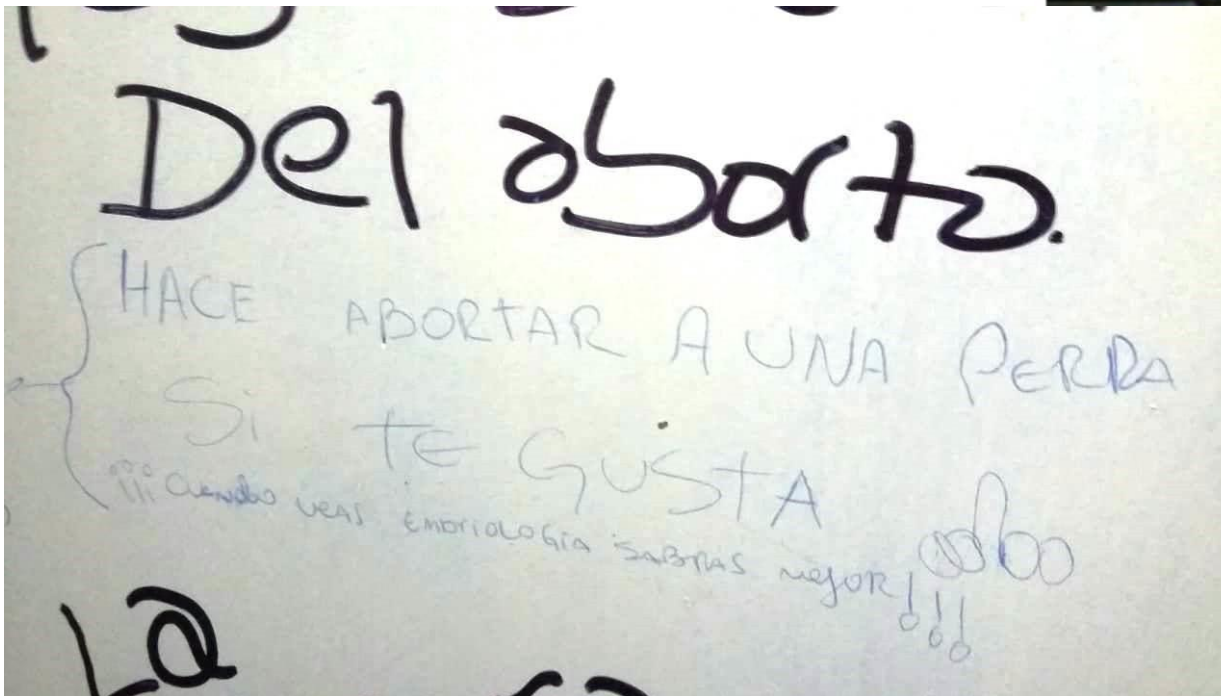 Del aborto.
HACE ABORTAR A UNA PERRA
Si TE GUSTA
¡¡¡ cuando veas EMbriOLOGíA SABRAS MEJOR!!!
La